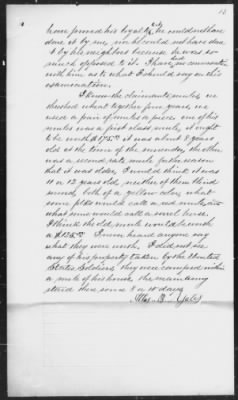 have proved his loyalty, he could not have
done it by me, and he could not have done
it by his neighbors because he was so
much opposed to it. I have had no conversation
with him as to what I should say in this
examination.
I knew the claimants mules, we
threshed wheat together four years, we
used a pair of mules a piece. one of his
mules was a first class mule, it ought
to be worth $175.00 it was about 8 years
old at the time of the surrender, the other
was a second rate mule for the reason
that it was older, I would think it was
11 or 12 years old, neither of them
sound, both of a yellow color, what
some folks would call a red mule, and
what some would call a sorrel horse.
I think the old mule would be worth
a $125.00 I never heard anyone say
what they were worth. I did not see
any of his property taken by the United
States Soldiers, they were camped within
a mile of his house, the main army
staid there some 8 or 10 days